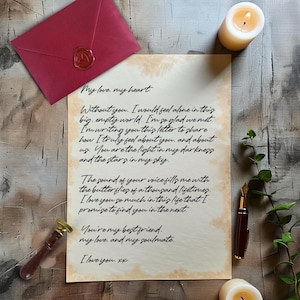 My love, my heart.
Without you, I would feel alone in this
big, empty world. I'm so glad we met.
I'm writing you this letter to share
how I truly feel about you, and about
us. You are the light in my darkness
and the stars in my sky.
The sound of your voice fills me with
the butterflies of a thousand lifetimes.
I love you so much in this life that I
promise to find you in the next.
You're my best friend,
my love, and my soulmate.
I love you. xx